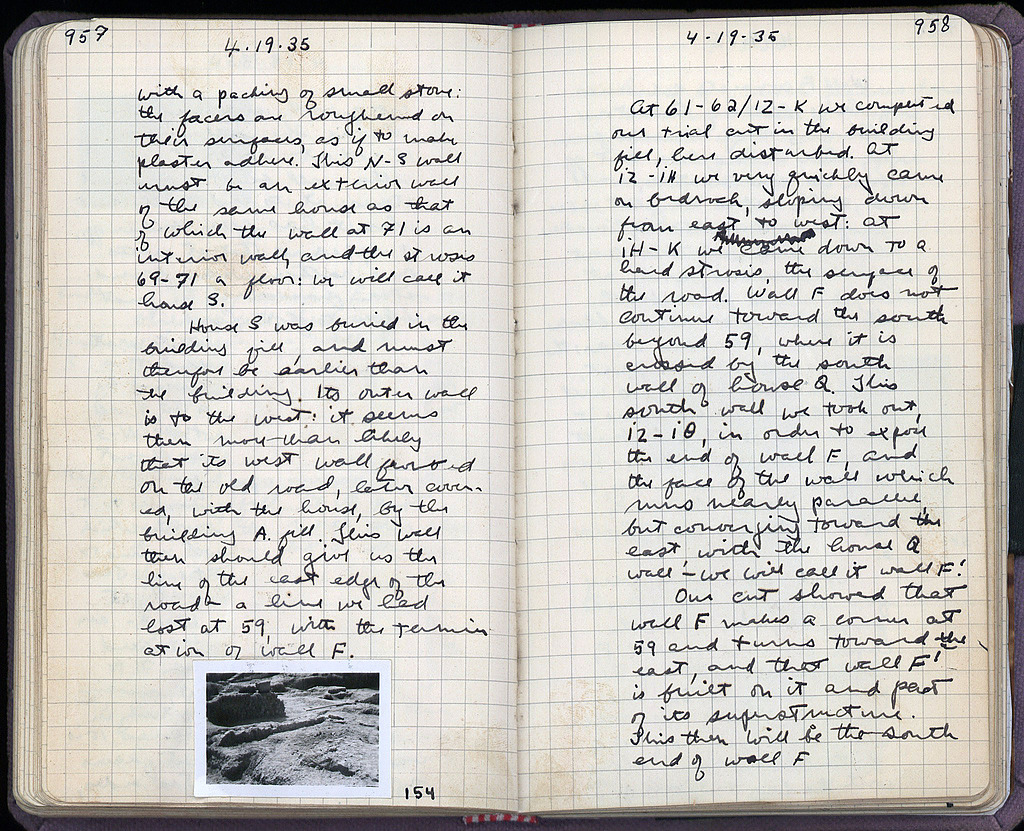 957
4.19.35
with a packing of small stone:
the faces are roughened on
their surfaces, as if to make
plaster adhere. This N-S wall
must be an exterior wall
of the same house as that
of which the wall at 71 is an
interior wall, and the strosis
69-71 a floor: we will call it
house S.
House S was buried in the
building fill, and must
therefore be earlier than
the building. Its outer wall
is to the west: it seems
then more than likely
that its west wall fronted
on the old road, later cover-
ed, with the house, by the
building A fill. This wall
then should give us the
line of the east edge of the
road - a line we had
lost at 59, with the termin
ation of wall F.
154
4-19-35
958
At 61-62/12-K we completed
our trial cut in the building
fill, here disturbed. At
we very quickly came
on bedrock, sloping down
from east to west: at
iH-K we came down to a
hard strosis, the surface of
the road. Wall F does not
continue toward the south
beyond 59, where it is
crossed by the south
wall of house Q. This
south wall we took out,
iz-iθ, in order to expose
the end of wall F, and
the face of the wall which
runs nearly parallel,
but converging toward the
east, with the house Q
wall - we will call it wall F'.
Our cut showed that
wall F makes a corner at
59 and turns toward the
east, and that wall F'
is built on it and part
of its superstructure.
This then will be the south
end of wall F